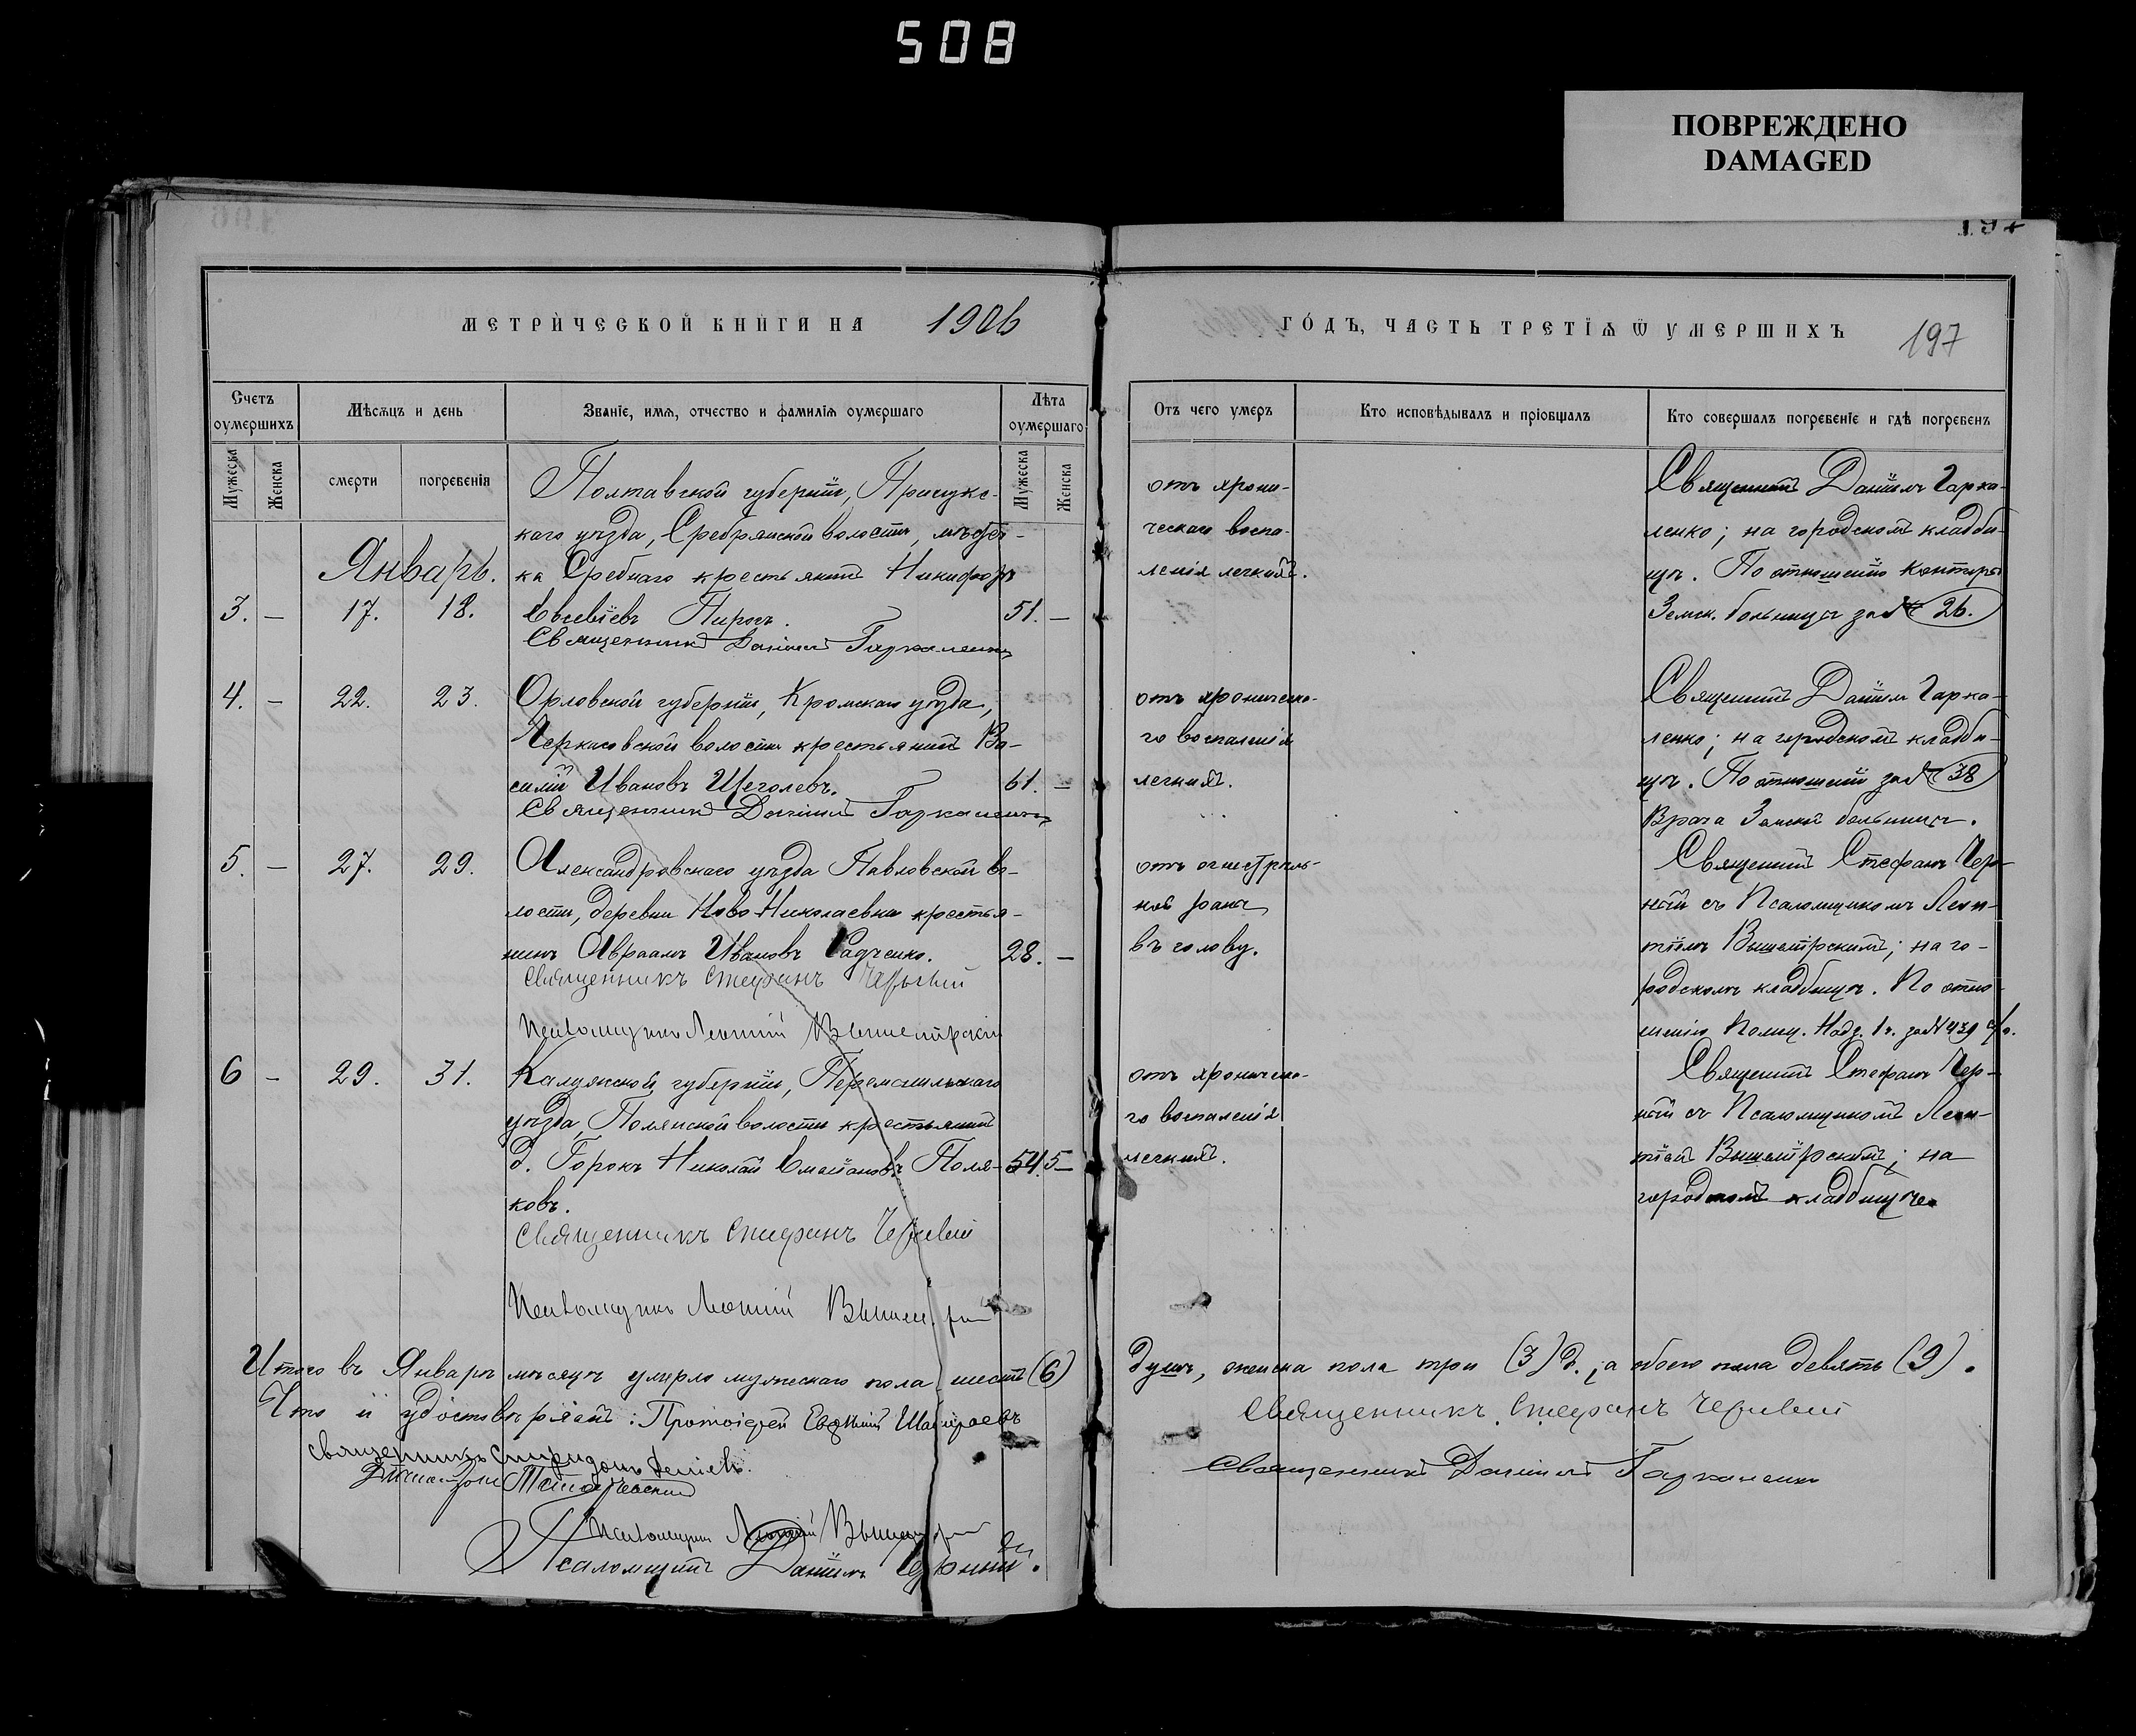 508
ПОВРЕЖДЕНО
DAMAGED
197
МЕТРИЧЕСКОЙ КНИГИ НА 1906
ГОДЪ, ЧАСТЬ ТРЕТІѦ Ѿ УМЕРШИХЪ
197
Счетъ оумершихъ
Мѣсѧцъ и день
Званіе, имѧ, отчество и фамиліѧ оумершаго
Лѣта оумершаго
Отъ чего умеръ
Кто исповѣдывалъ и пріобщалъ
Кто совершалъ погребеніе и гдѣ погребенъ
Мужеска
Женска
смерти
погребеніѧ
Мужеска
Женска
Январь.
Полтавской губерніи, Прилукс-
каго уѣзда, Сребрянской волости, мѣстеч-
ка Сребнаго крестьянинъ Никифоръ
3. — 17. 18. Евсевіевъ Пирогъ. 51. —
Священникъ Даніилъ Гаркаленко
отъ хрони-
ческаго воспа-
ленія легкихъ.
Священникъ Даніилъ Гарка-
ленко; на городскомъ кладби-
щѣ. По отношенію Конторы
Земск. больницы за № 26.
4. — 22. 23. Орловской губерніи, Кромскаго уѣзда,
Черкасовской волости крестьянинъ Ва-
силій Ивановъ Щеголевъ. 61. —
Священникъ Даніилъ Гаркаленко
отъ хроническа-
го воспаленія
легкихъ.
Священникъ Даніилъ Гарка-
ленко; на городскомъ кладби-
щѣ. По отношенію за № 38
Врача Земской больницы.
5. — 27. 29. Александровскаго уѣзда Павловской во-
лости, деревни Ново-Николаевки крестья-
нинъ Авраамъ Ивановъ Радченко. 28. —
Священникъ Стефанъ Чернявый
Псаломщикъ Леонтій Вышемірскій
отъ огнестрѣль-
ной раны
въ голову.
Священникъ Стефанъ Чер-
ный съ Псаломщикомъ Леон-
тіемъ Вышемірскимъ; на го-
родскомъ кладбищѣ. По отно-
шенію Полиц. Надз. 1 ч. за № 439
6 — 29. 31. Калужской губерніи, Перемышльскаго
уѣзда, Полянской волости крестьянинъ
д. Горокъ Николай Емеліановъ Поля- 54. —
ковъ.
Священникъ Стефанъ Чернявый
Псаломщикъ Леонтій
отъ хроническа-
го воспаленія
легкихъ.
Священникъ Стефанъ Чер-
ный съ Псаломщикомъ Леон-
тіемъ Вышемірскимъ; на
городскомъ кладбищѣ.
Итого въ Январѣ мѣсяцѣ умерло мужескаго пола шесть (6)
душъ, женска пола три (3) д., а обоего пола девять (9).
Что и удостовѣряемъ: Протоіерей Евѳимій
Священникъ Спиридонъ
Псаломщикъ Леонтій
Псаломщикъ Даніилъ
Священникъ Стефанъ Чернявый
Священникъ Даніилъ Гаркаленко